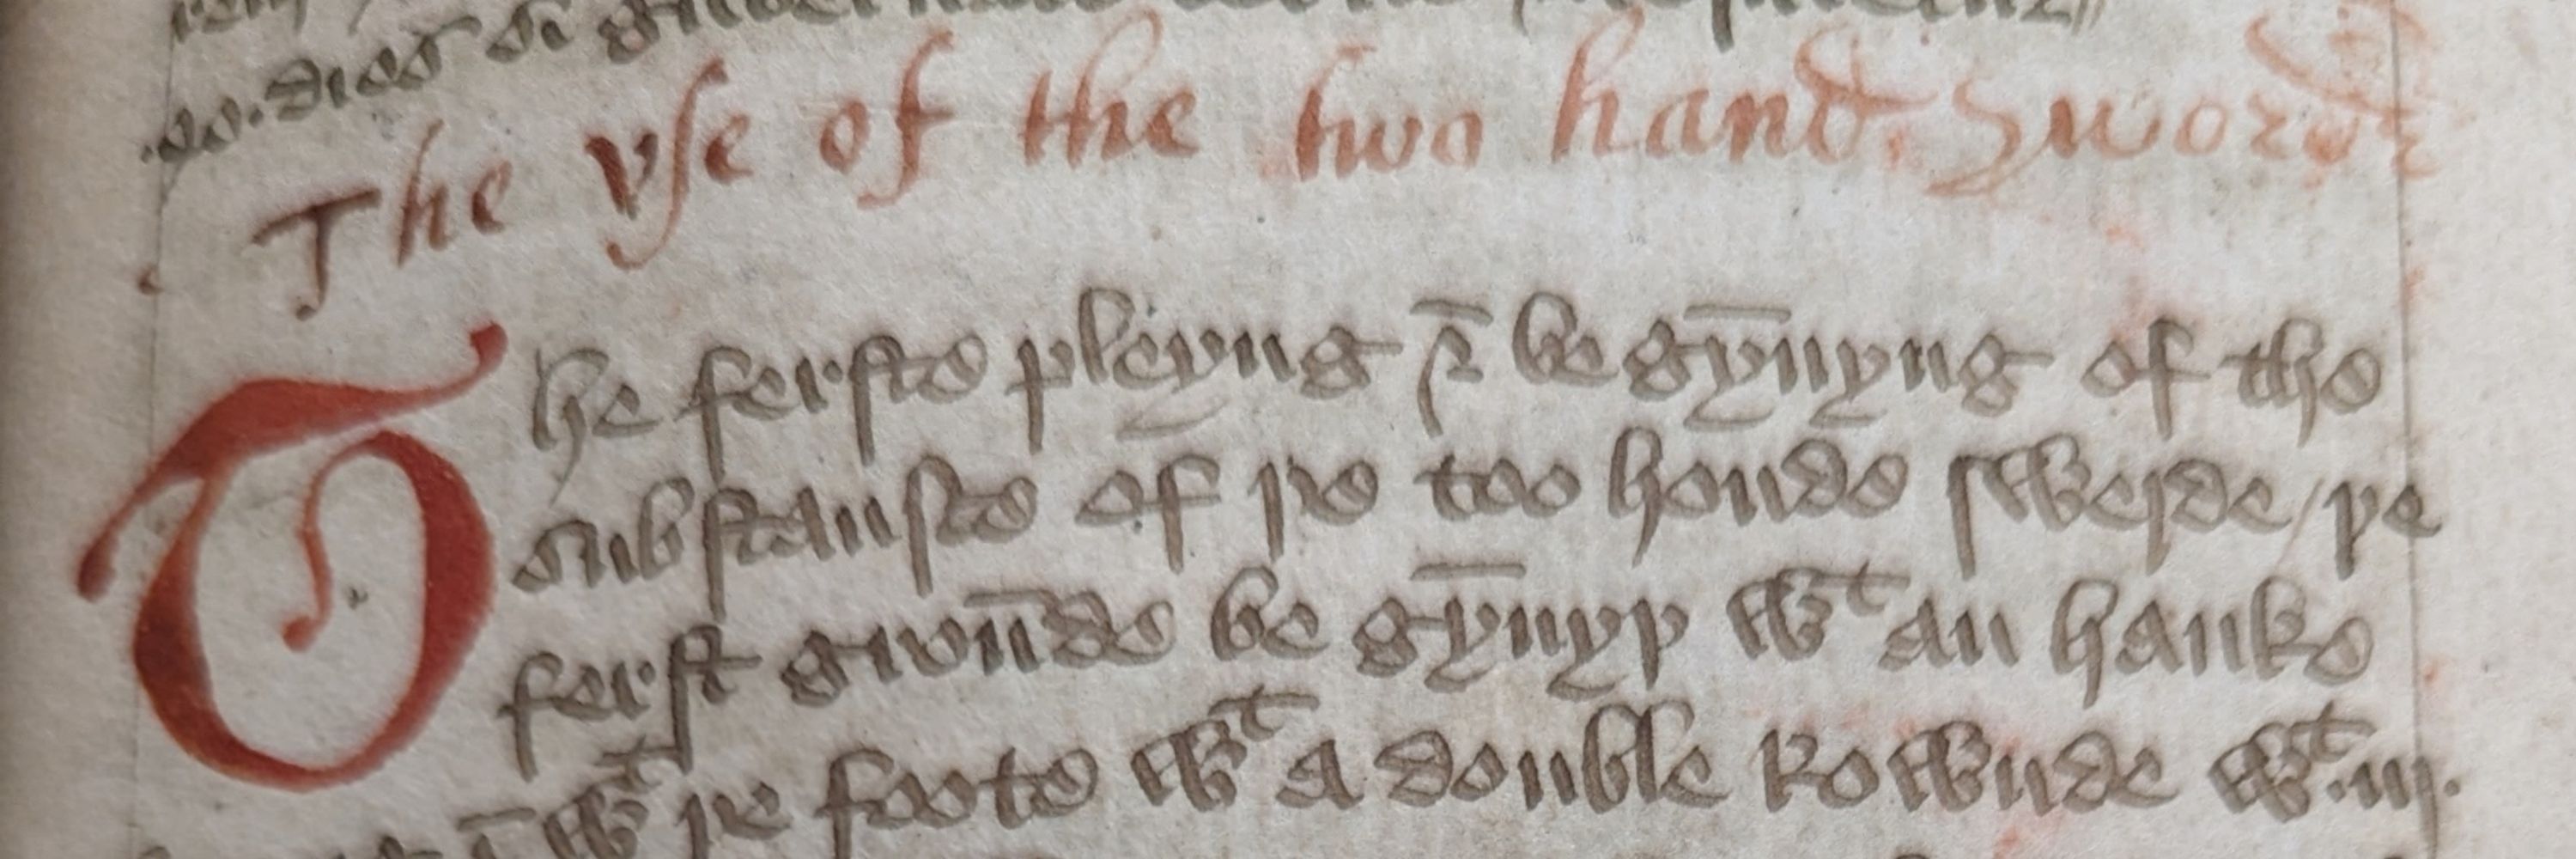 .do. dies
The vse of the two hand Sword
The ferste pleyng & begȳnyng of the
substanste of þe too honde swerde / þe
ferst grwn̄de be gȳnyþ wᵗ an hanke
wᵗ þe foote wᵗ a double Rownde wᵗ .iij.